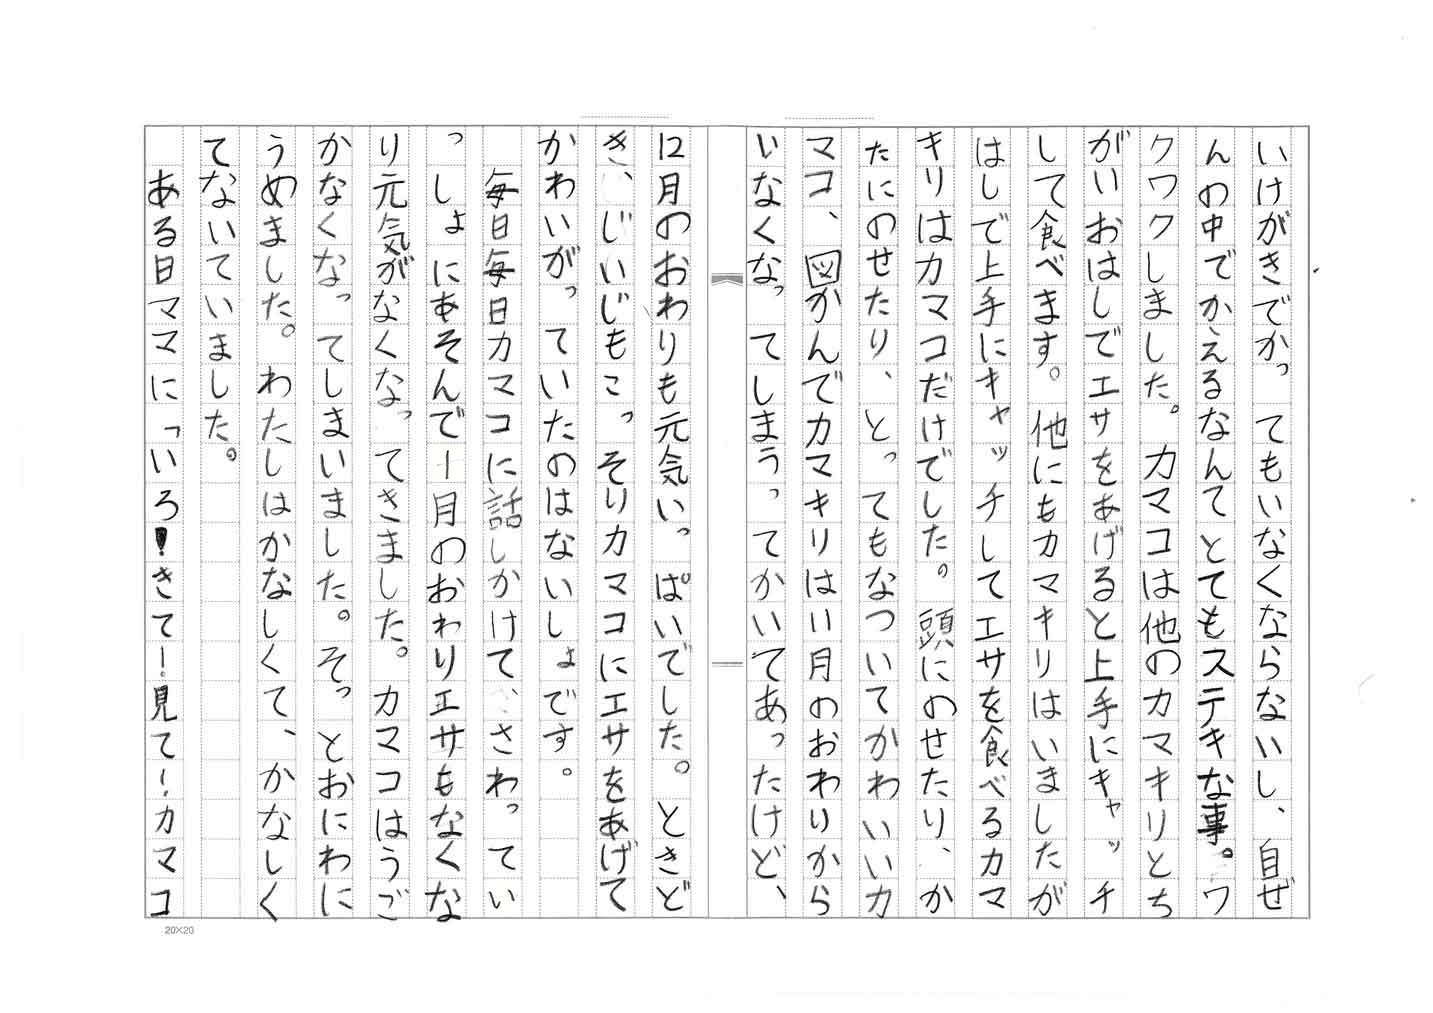 いけがきでかってもいなくならないし、自ぜ
んの中でかえるなんてとてもステキな事。ワ
クワクしました。カマコは他のカマキリとち
がいおはしでエサをあげると上手にキャッチ
して食べます。他にもカマキリはいましたが
はしで上手にキャッチしてエサを食べるカマ
キリはカマコだけでした。頭にのせたり、か
たにのせたり、とってもなついてかわいいカ
マコ、図かんでカマキリは11月のおわりから
いなくなってしまうってかいてあったけど、
12月のおわりも元気いっぱいでした。ときど
き、じいじもこっそりカマコにエサをあげて
かわいがっていたのはないしょです。
毎日毎日カマコに話しかけて、さわってい
っしょにあそんで一月のおわりエサもなくな
り元気がなくなってきました。カマコはうご
かなくなってしまいました。そっとおにわに
うめました。わたしはかなしくて、かなしく
てないていました。
ある日ママに「いろ!きて!見て!カマコ
20×20